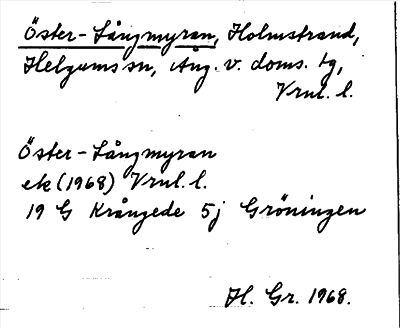 Öster-Långmyran, Holmstrand,
Helgums sn, Ång. v. doms. tg,
Vrul. l.
Öster-Långmyran
ek (1968) Vrul. l.
19 G Krångede 5j Gröningen
H. Gr. 1968.